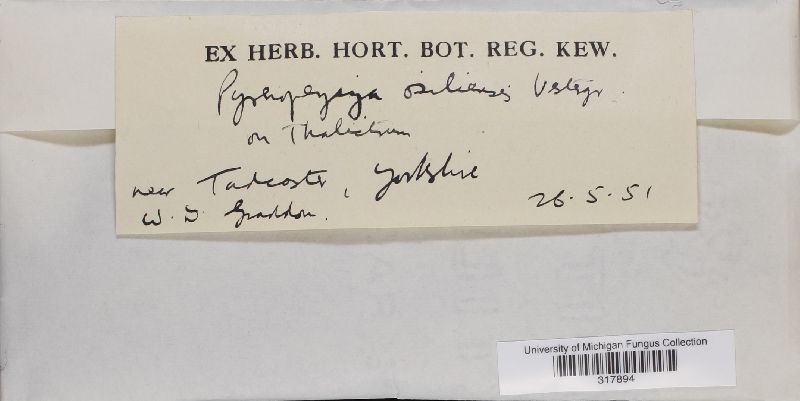 EX HERB. HORT. BOT. REG. KEW.
Pyrenopeziza osiliensis Vestergr.
on Thalictrum
near Tadcaster, Yorkshire
W. D. Graddon. 26.5.51
University of Michigan Fungus Collection
317894